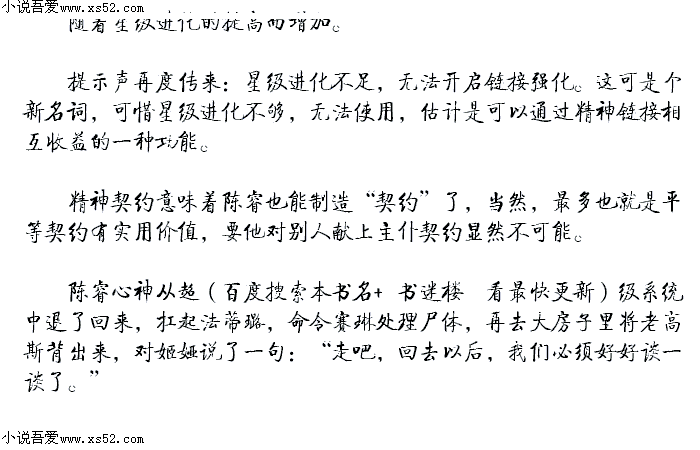 小说吾爱www.xs52.com
随着星级进化的提高而增加。
提示声再度传来：星级进化不足，无法开启链接强化。这可是个
新名词，可惜星级进化不够，无法使用，估计是可以通过精神链接相
互收益的一种功能。
精神契约意味着陈睿也能制造“契约”了，当然，最多也就是平
等契约有实用价值，要他对别人献上主仆契约显然不可能。
陈睿心神从超（百度搜索本书名+ 书迷楼 看最快更新）级系统
中退了回来，扛起法蒂璐，命令赛琳处理尸体，再去大房子里将老高
斯背出来，对姬娅说了一句：“走吧，回去以后，我们必须好好谈一
谈了。”
小说吾爱www.xs52.com